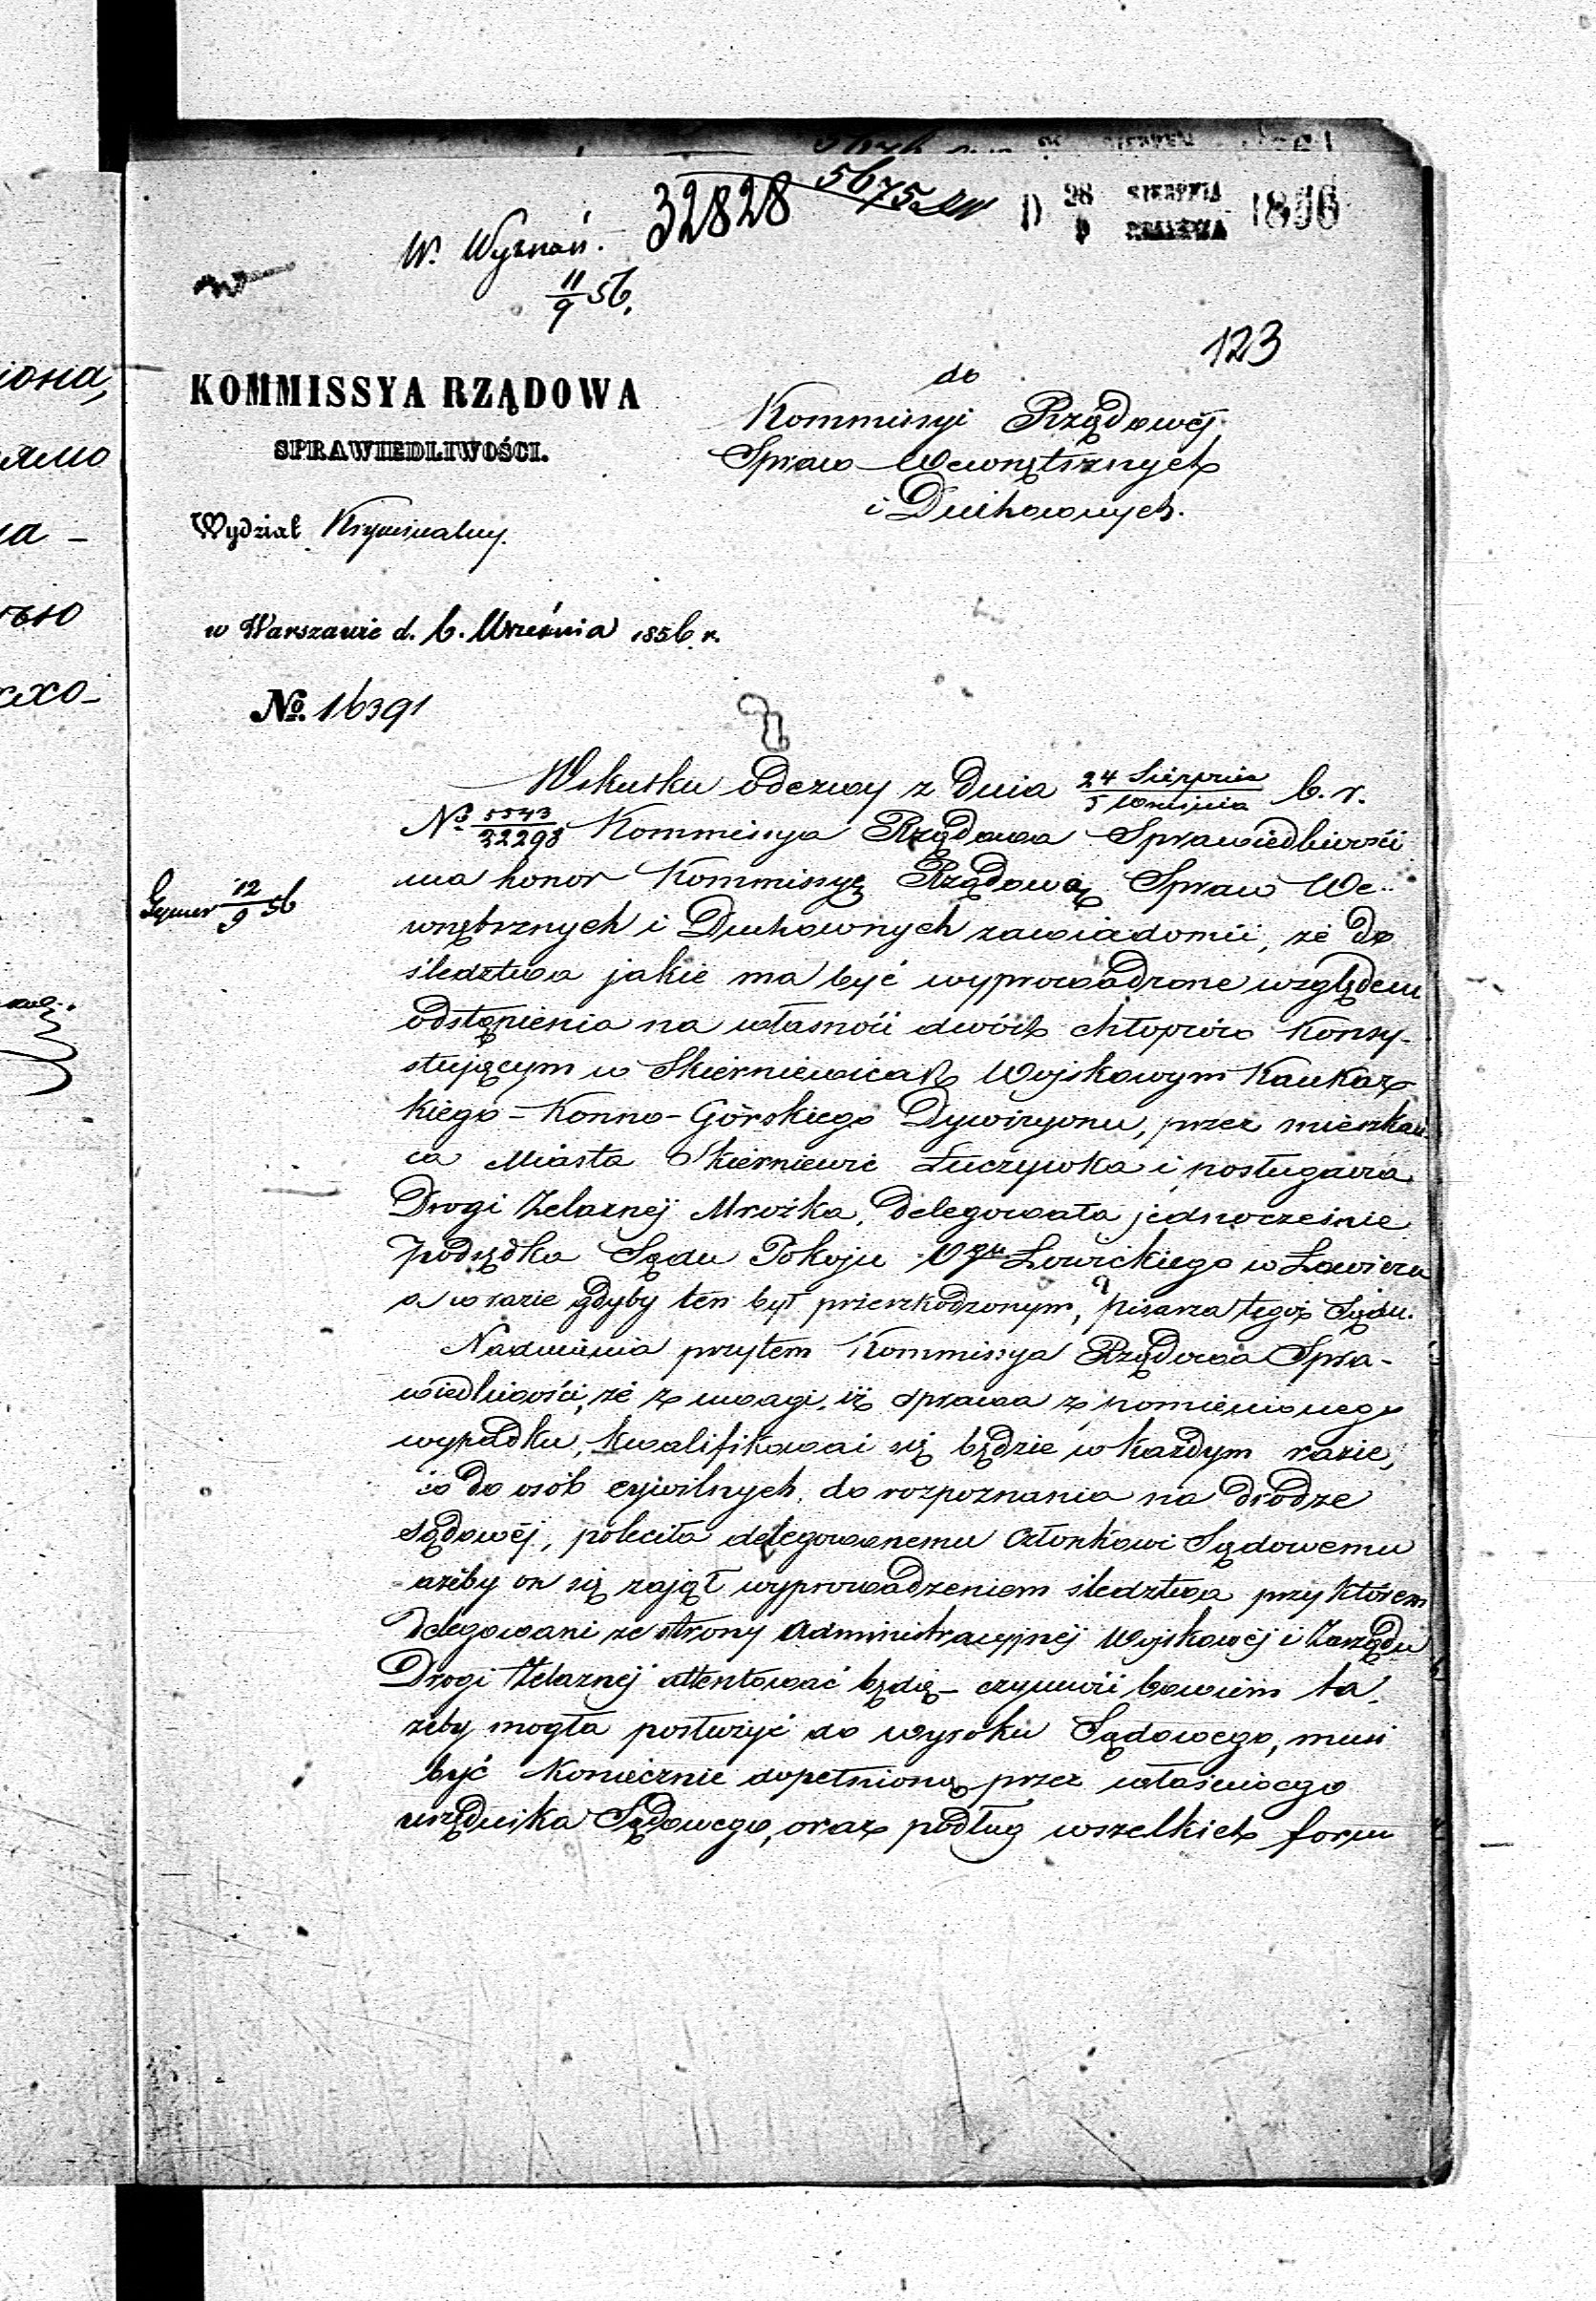 32828 5675
D 28 SIERPNIA 1856
9 WRZEŚNIA
W. Wyznań.
11/9 56.
123
KOMMISSYA RZĄDOWA
SPRAWIEDLIWOŚCI.
Wydział Kryminalny.
w Warszawie d. 6. Września 1856 r.
No. 16391
do
Kommissyi Rządowéj
Spraw Wewnętrznych
i Duchownych.
Wskutku odezwy z dnia 24 Sierpnia/5 Września b. r.
No. 5543/32298 Kommissya Rządowa Sprawiedliwości
ma honor Kommissyę Rządową Spraw We-
wnętrznych i Duchownych zawiadomić, że do
śledztwa jakie ma być wyprowadzone względem
odstąpienia na własność dwóch chłopców Konsy-
stującym w Skierniewicach Wojskowym Kaukaz-
kiego-Konno-Górskiego Dywizyonu, przez mieszkań-
ca Miasta Skierniewic Łuczywka i posługacza
Drogi Żelaznéj Mrożka, delegowała jednocześnie
Podsędka Sądu Pokoju Ogu Łowickiego w Łowiczu
a w razie gdyby ten był przeszkodzonym, Pisarza tegoż Sądu.
Nadmienia przytem Kommissya Rządowa Spra-
wiedliwości, że z uwagi, iż sprawa z pomienionego
wypadku, kwalifikować się będzie w każdym razie,
co do osób cywilnych, do rozpoznania na drodze
sądowéj, poleciła delegowanemu Członkowi Sądowemu
ażeby on się zajął wyprowadzeniem śledztwa przy którem
delegowani ze strony Administracyjnéj Wojskowéj i Zarządu
Drogi Żelaznéj attentować będą – czynność bowiem ta,
żeby mogła posłużyć do wyroku Sądowego, musi
być koniecznie dopełnioną przez właściwego
urzędnika Sądowego, oraz podług wszelkich form
12/9 56